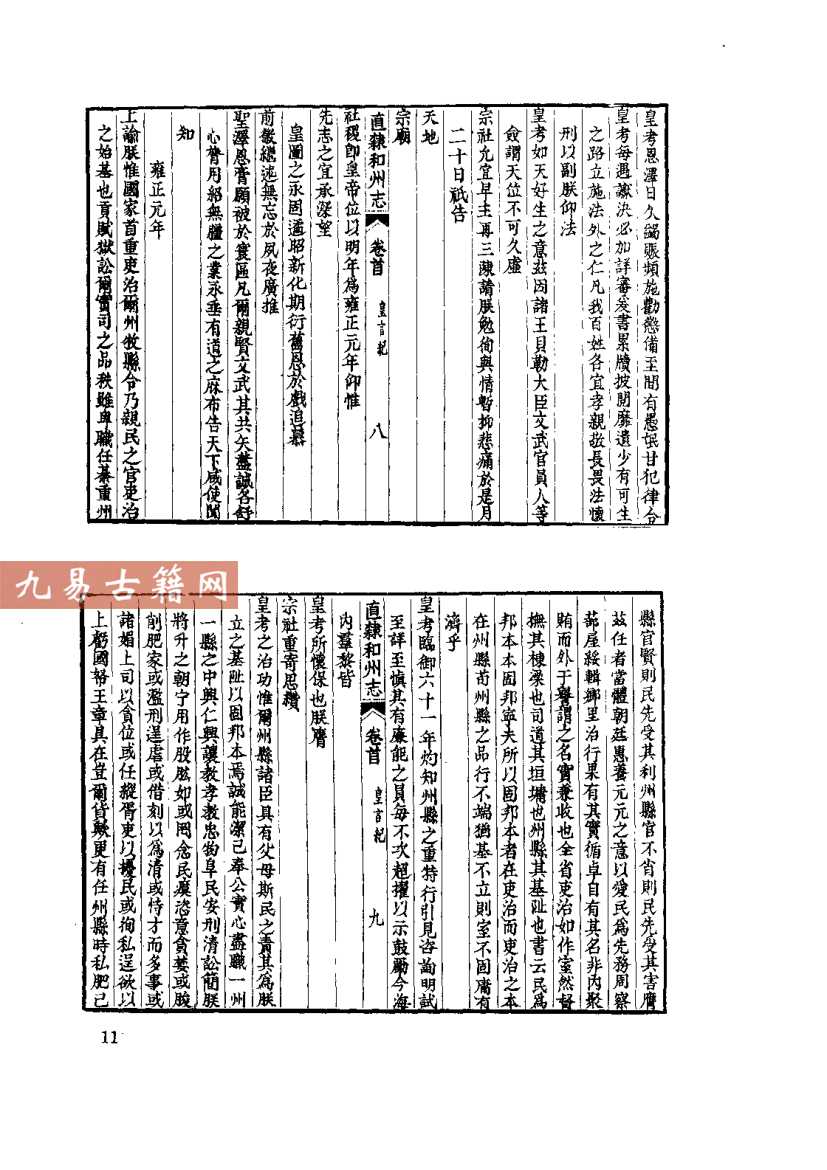 皇考恩澤日久編賑頻施勸懲備至間有愚氓甘犯律令
皇考每遇讞決必加詳審爰書累牘披閱靡遺少有可生
之路立施法外之仁凡我百姓各宜孝親敬長畏法懷
刑以副朕仰法
皇考如天好生之意茲因諸王貝勒大臣文武官員人等
僉謂天位不可久虛
宗社允宜早主再三陳請朕勉徇輿情暫抑悲痛於是月
二十日祇告
天地
宗廟
直隸和州志
卷首
皇言紀
八
社稷卽皇帝位以明年爲雍正元年仰惟
先志之宜承深望
皇圖之永固適昭新化期衍舊恩於戲追慕
前徽繼述無忘於夙夜廣推
聖澤恩膏願被於寰區凡爾親賢文武其共矢藎誠各舒
心膂用紹無疆之業永垂有道之庥布告天下咸使聞
知
雍正元年
上諭朕惟國家首重吏治爾州牧縣令乃親民之官吏治
之始基也貢賦獄訟爾實司之品秩雖卑職任綦重州
九易古籍网
縣官賢則民先受其利州縣官不省則民先受其害膺
茲任者當體朝廷惠養元元之意以愛民爲先務周察
蔀屋綏輯鄉里治行果有其實循卓自有其名非內聚
賄而外于譽謂之名實兼收也全省吏治如作室然督
撫其棟梁也司道其垣墉也州縣其基趾也書云民爲
邦本本固邦寧夫所以固邦本者在吏治而吏治之本
在州縣苟州縣之品行不端猶基不立則室不固庸有
濟乎
皇考臨御六十一年灼知州縣之重特行引見咨諭明試
至詳至慎其有廉能之員每不次超擢以示鼓勵今海
直隸和州志
卷首
皇言紀
九
內羣黎皆
皇考所懷保也朕膺
宗社重寄思纘
皇考之治功惟爾州縣諸臣具有父母斯民之責其爲朕
立之基趾以固邦本焉誠能潔己奉公實心盡職一州
一縣之中興仁興讓教孝教忠物阜民安刑清訟簡朕
將升之朝宁用作股肱如或罔念民瘼恣意貪婪或朘
削肥家或濫刑逞虐或借刻以爲清或恃才而多事或
諂媚上司以貪位或任縱胥吏以擾民或徇私逞欲以
上虧國帑王章具在豈爾貸歟更有任州縣時私肥己
11